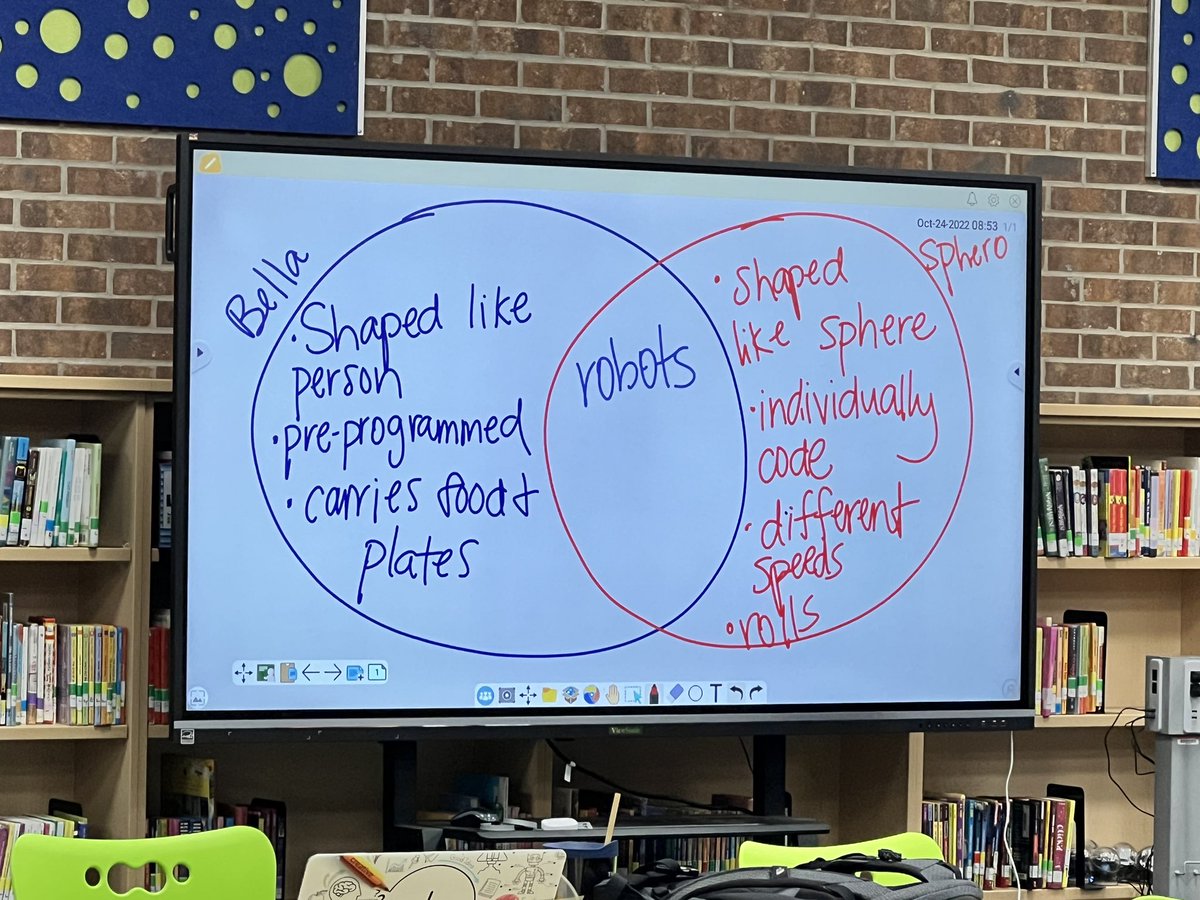 Oct-24-2022 08:53 1/1
Bella
• Shaped like
person
• pre-programmed
• carries food +
plates
robots
Sphero
• shaped
like sphere
• individually
code
• different
speeds
• rolls
1
T
ViewSonic